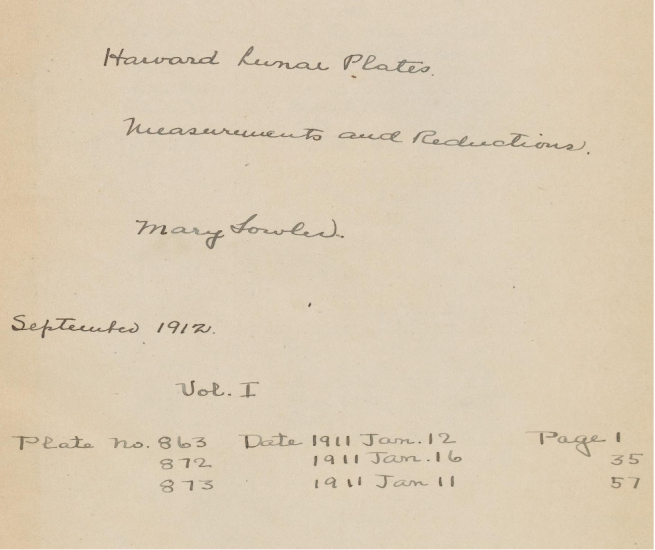 Harvard Lunar Plates.
Measurements and Reductions.
Mary Fowler.
September 1912.
Vol. I
Plate No. 863 Date 1911 Jan. 12 Page 1
872 1911 Jan. 16 35
873 1911 Jan 11 57